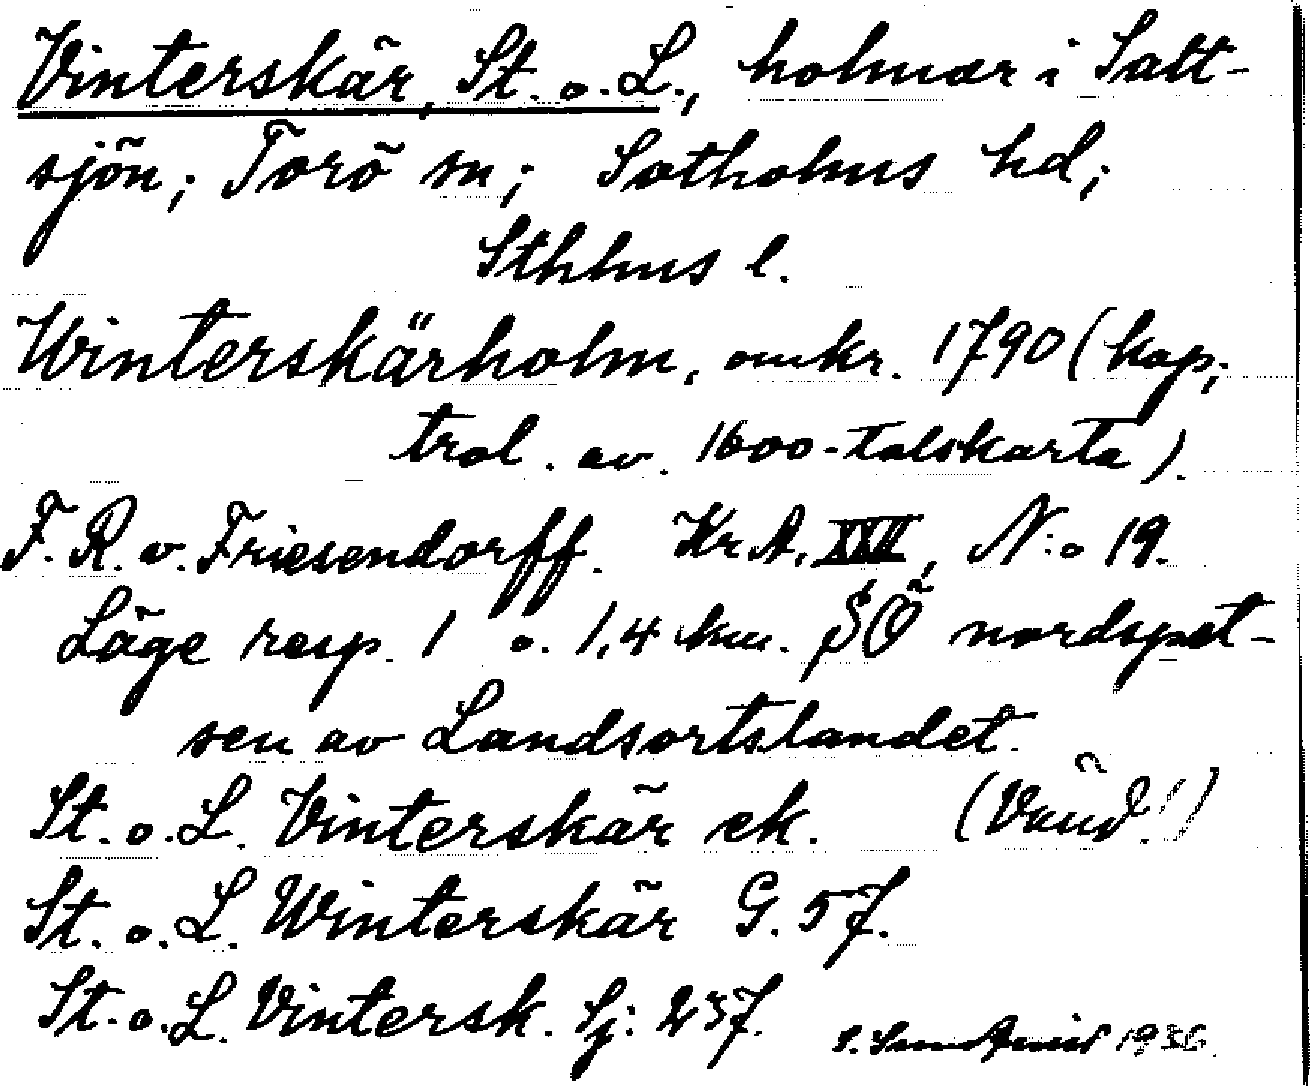 Vinterskär, St. o. L., holmar i Salt-
sjön; Torö sn; Sotholms hd;
Sthlms l.
Winterskärholm, omkr. 1790 (kop;
trol. av. 1600-talskarta).
F. R. v. Friesendorff. Kr. A. XXV, N:o 19.
Läge resp. 1 o. 1,4 km. SÖ nordspet-
sen av Landsortslandet.
St. o. L. Vinterskär ek. (Vänd!)
St. o. L. Winterskär G. 57.
St. o. L. Vintersk. Sj: 237.
1936